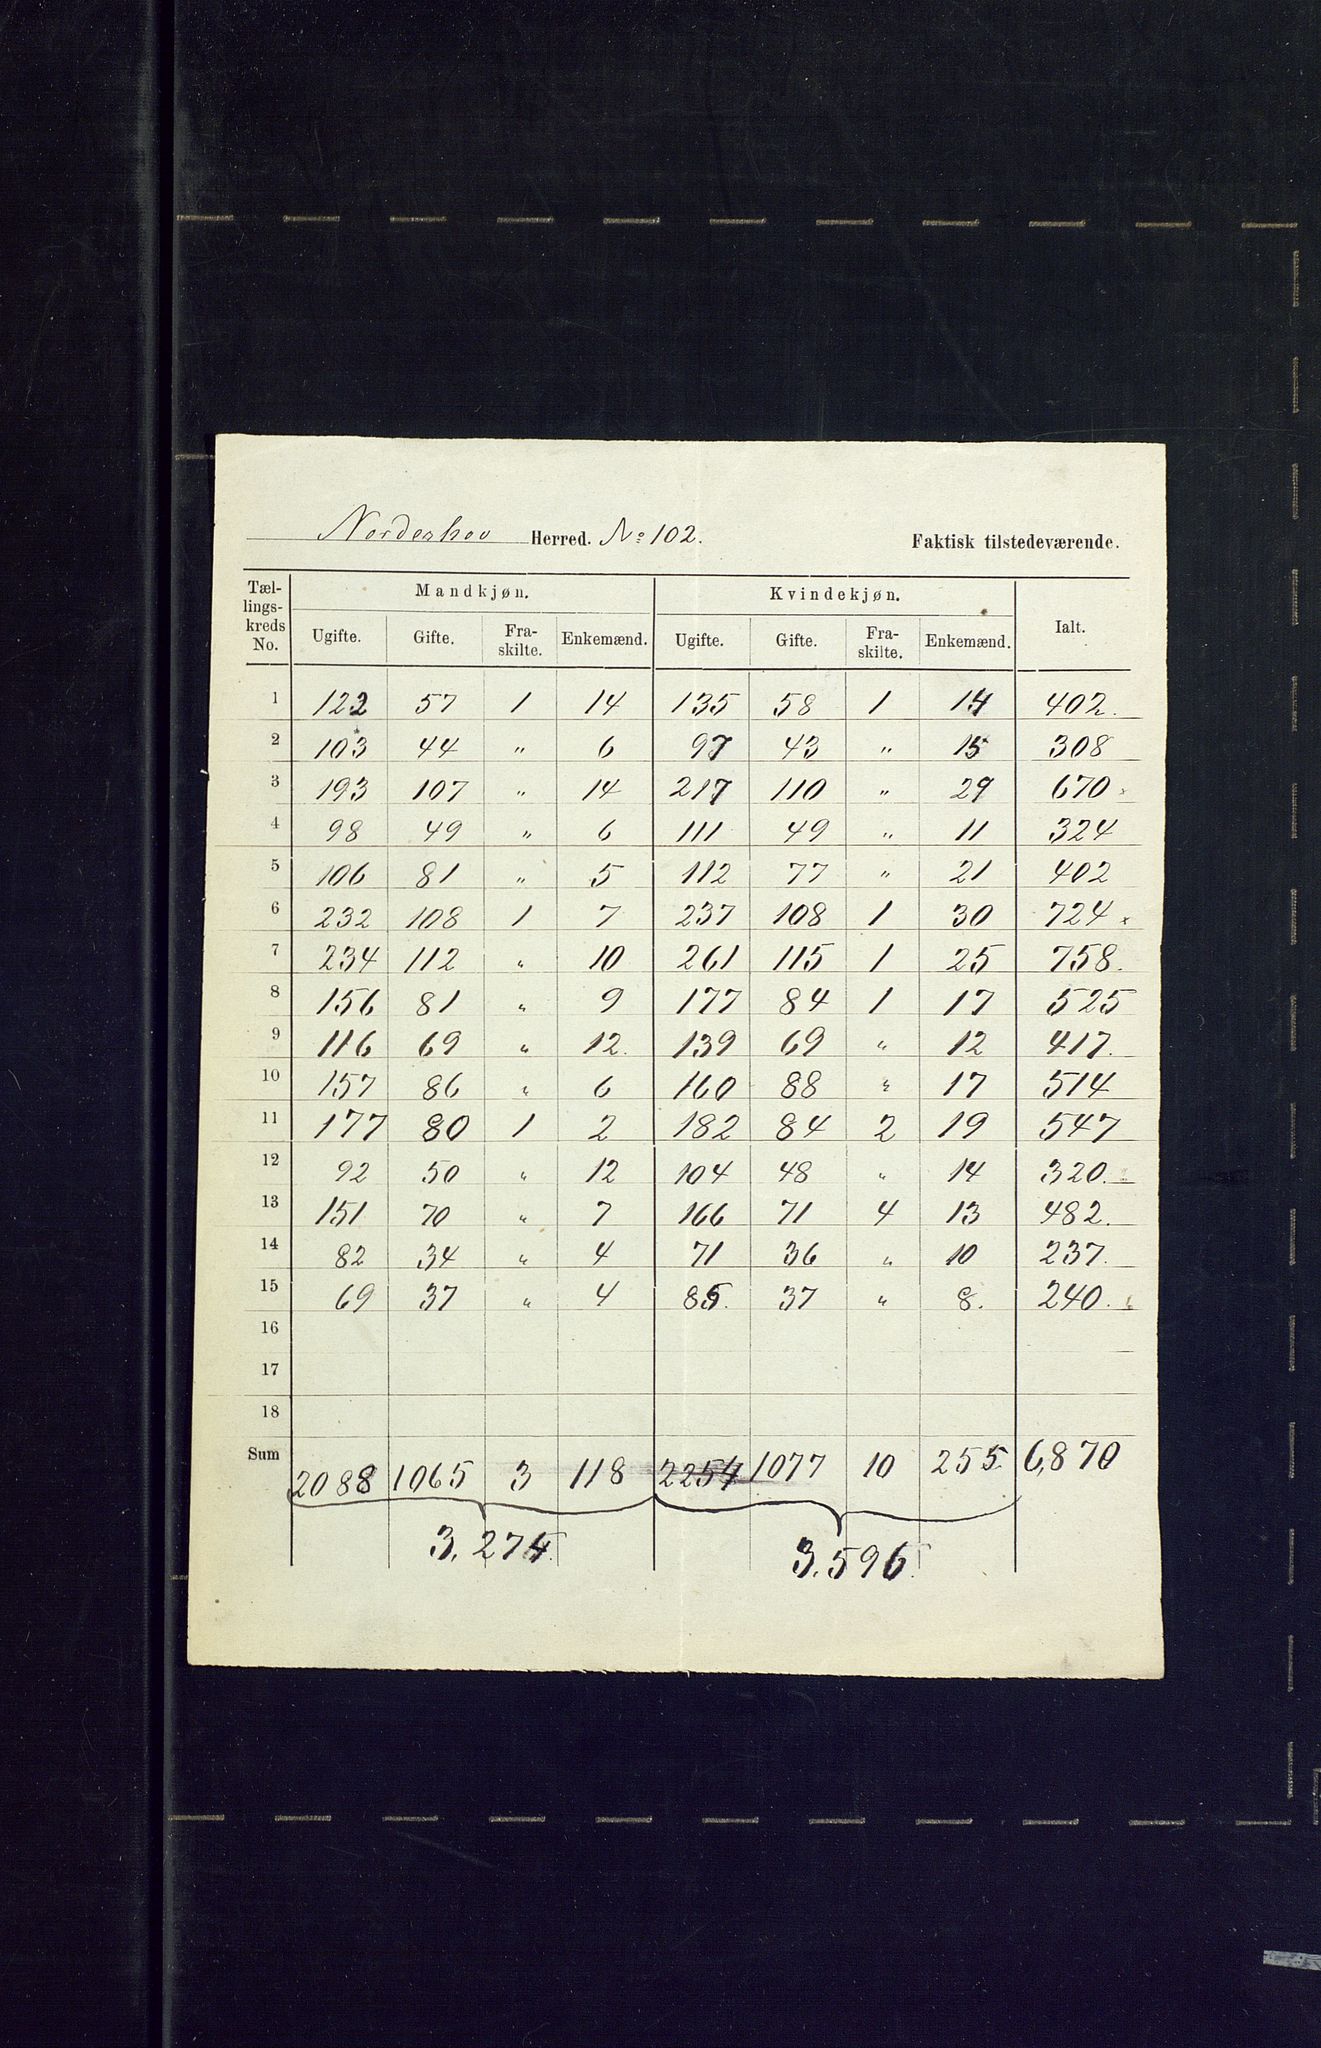 Norderhov Herred. No 102. Faktisk tilstedeværende.
Tæl-lings-kreds No. Mandkjøn. Kvindekjøn. Ialt.
Ugifte. Gifte. Fra-skilte. Enkemænd. Ugifte. Gifte. Fra-skilte. Enkemænd.
1 122 57 1 14 135 58 1 14 402.
2 103 44 " 6 97 43 " 15 308
3 193 107 " 14 217 110 " 29 670
4 98 49 " 6 111 49 " 11 324
5 106 81 " 5 112 77 " 21 402
6 232 108 1 7 237 108 1 30 724
7 234 112 " 10 261 115 1 25 758.
8 156 81 " 9 177 84 1 17 525
9 116 69 " 12. 139 69 " 12 417.
10 157 86 " 6 160 88 " 17 514
11 177 80 1 2 182 84 2 19 547
12 92 50 " 12 104 48 " 14 320.
13 151 70 " 7 166 71 4 13 482.
14 82 34 " 4 71 36 " 10 237.
15 69 37 " 4 85. 37 " 8. 240.
16
17
18
Sum 2088 1065 3 118 2254 1077 10 255 6,870
3,274. 3,596.